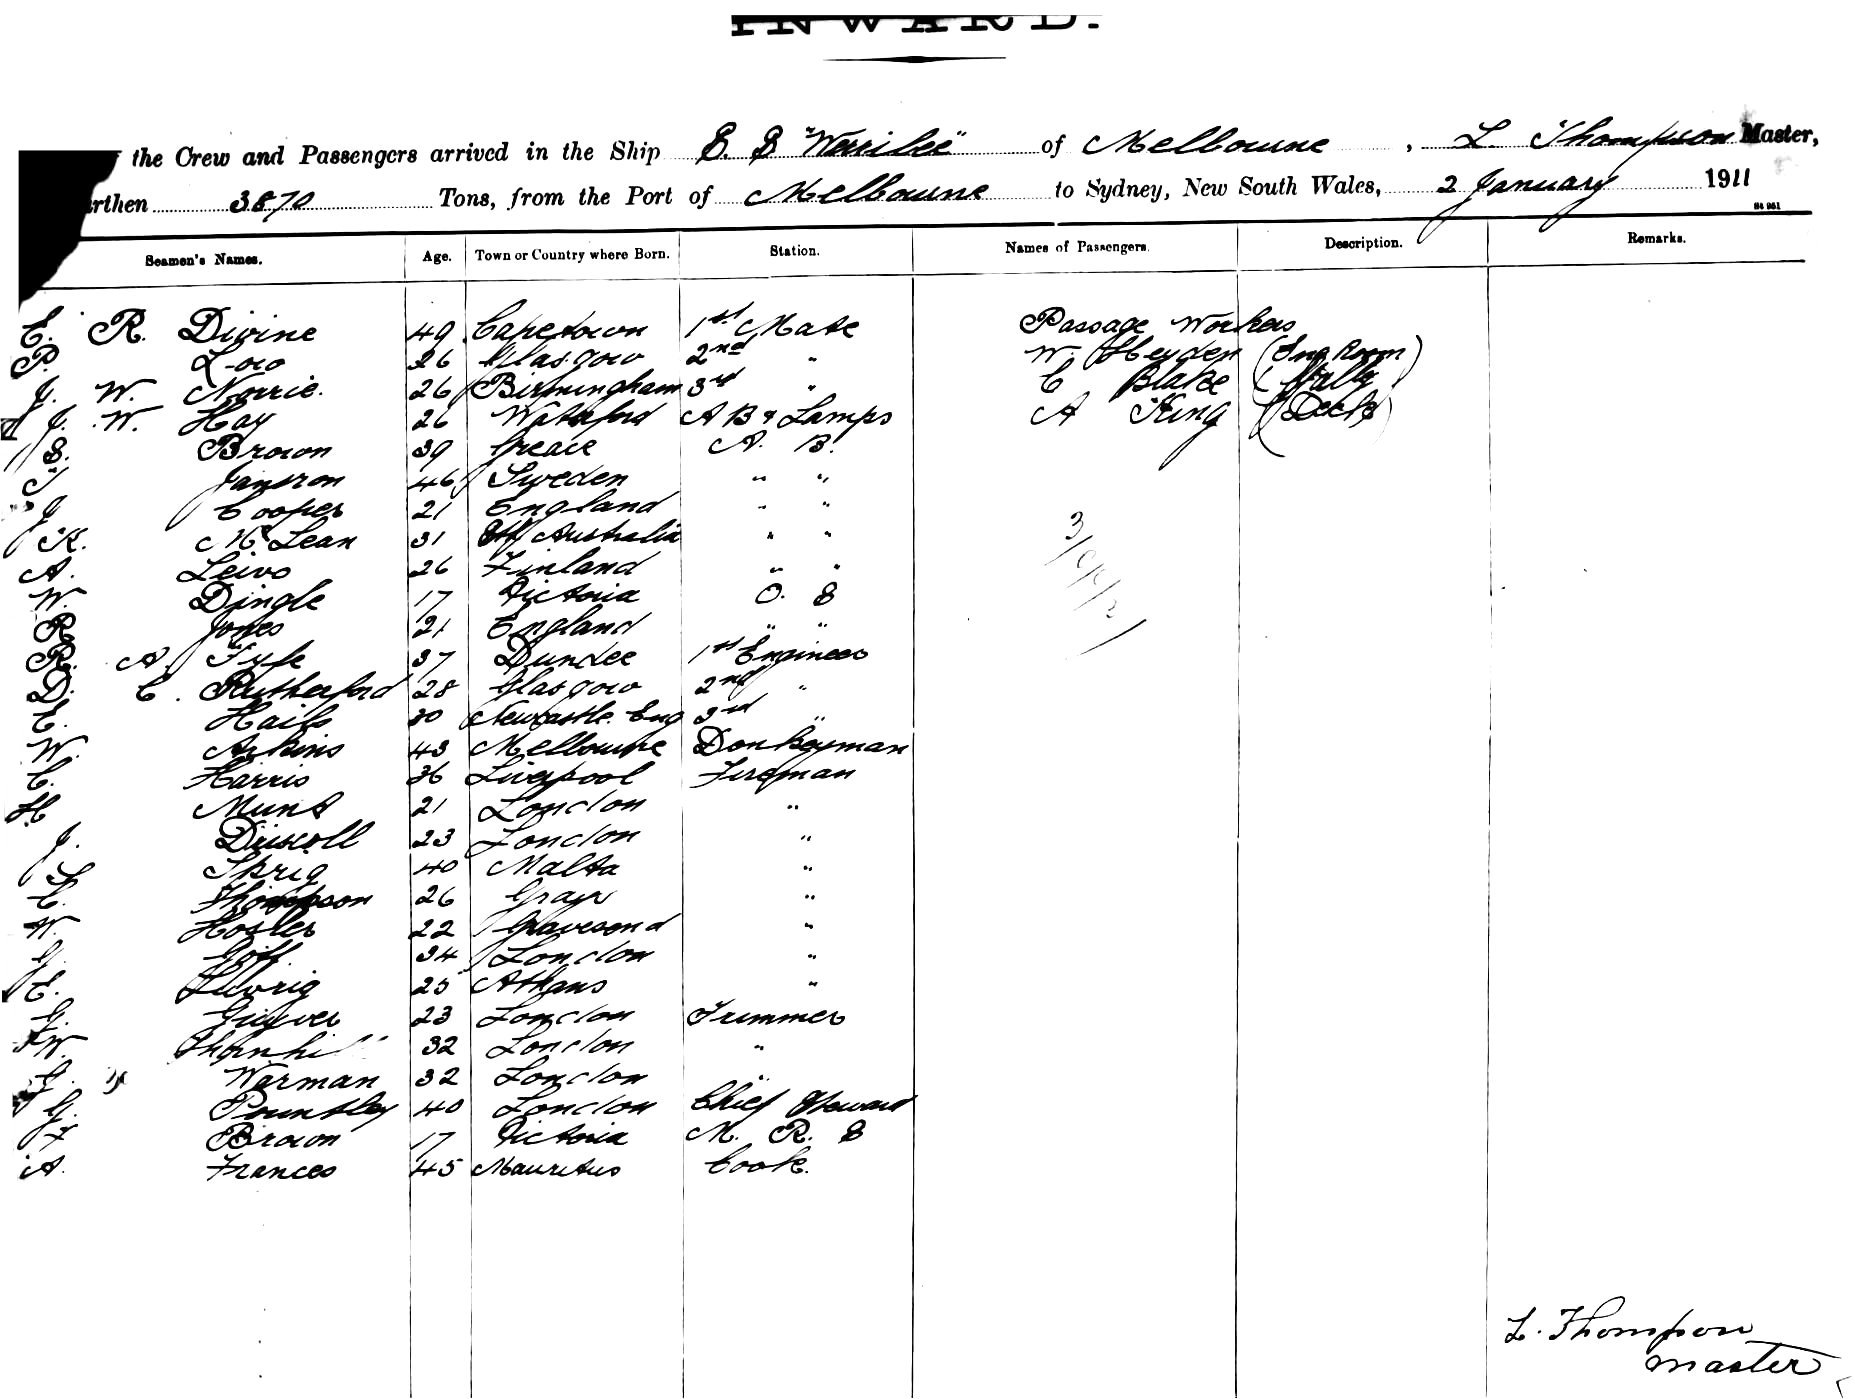 INWARD.
the Crew and Passengers arrived in the Ship S. S "Werribee" of Melbourne, L. Thompson Master,
rthen 3870 Tons, from the Port of Melbourne to Sydney, New South Wales, 2 January 1911
St 951
Seamen's Names. Age. Town or Country where Born. Station. Names of Passengers. Description. Remarks.
E. R. Divine 49 Capetown 1st Mate Passage Workers
P. Low 26 Glasgow 2nd " W. Heyden (Eng Room)
J. W. Norrie. 26 Birmingham 3rd " C Blake (Gally)
J. W. Hay 26 Waterford A B & Lamps A King (Deck)
S. Brown 39 Greace A. B.
Jansron 46 Sweden " "
J Cooper 21 England " "
K. Mc Lean 31 Sth Australia " "
A. Leivo 26 Finland " "
W. Dingle 17 Victoria O. S
R Jones 21 England " "
R. A. Fyfe 37 Dundee 1st Engineer
D. C. Rutherford 28 Glasgow 2nd "
C. Hails 30 Newcastle. Eng 3rd "
W. Atkins 43 Melbourne Donkeyman
C. Harris 36 Liverpool Fireman
H Munt 21 London "
J. Driscoll 23 London "
S Skrig 40 Malta "
C. Thompson 26 Grays "
W. Hosler 22 Gravesend "
G. Goff. 34 London "
E. Luvrig 25 Athans "
G. Guyver 23 London Trimmer
W. 32 London "
G. Warman 32 London "
G. Pountley 40 London Chief Steward
F Brown 17 Victoria M. R. S
A. Frances 45 Mauritus Cook.
L. Thompson
master